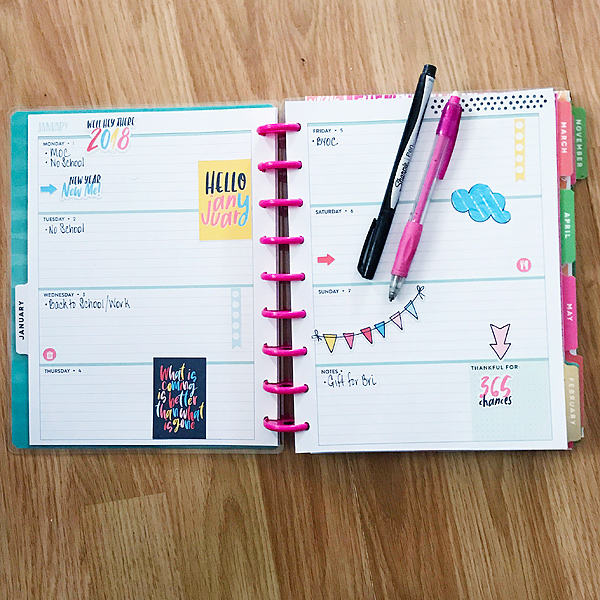 JANUARY
WELL HEY THERE
2018
MONDAY • 1
• MOC
• No School
NEW YEAR
New Me!
HELLO
january
TUESDAY • 2
• No School
WEDNESDAY • 3
• Back to School/Work
THURSDAY • 4
What is
coming
is better
than what
is gone
JANUARY
FRIDAY • 5
• BYOC
SATURDAY • 6
SUNDAY • 7
NOTES
• Gift for Bri
THANKFUL FOR:
365
chances
Sharpie Pen
NOVEMBER
MARCH
APRIL
MAY
FEBRUARY